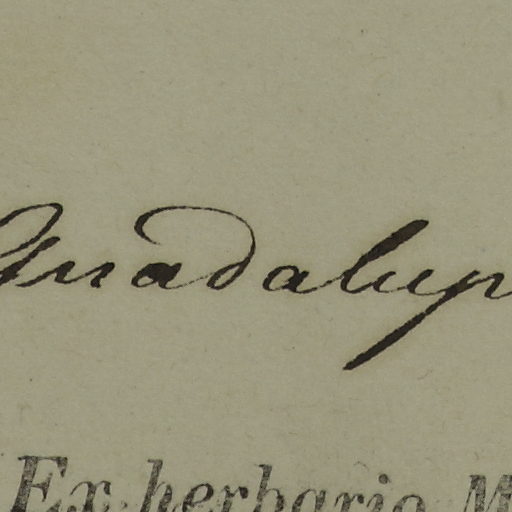 Guadalup
Ex herbario M